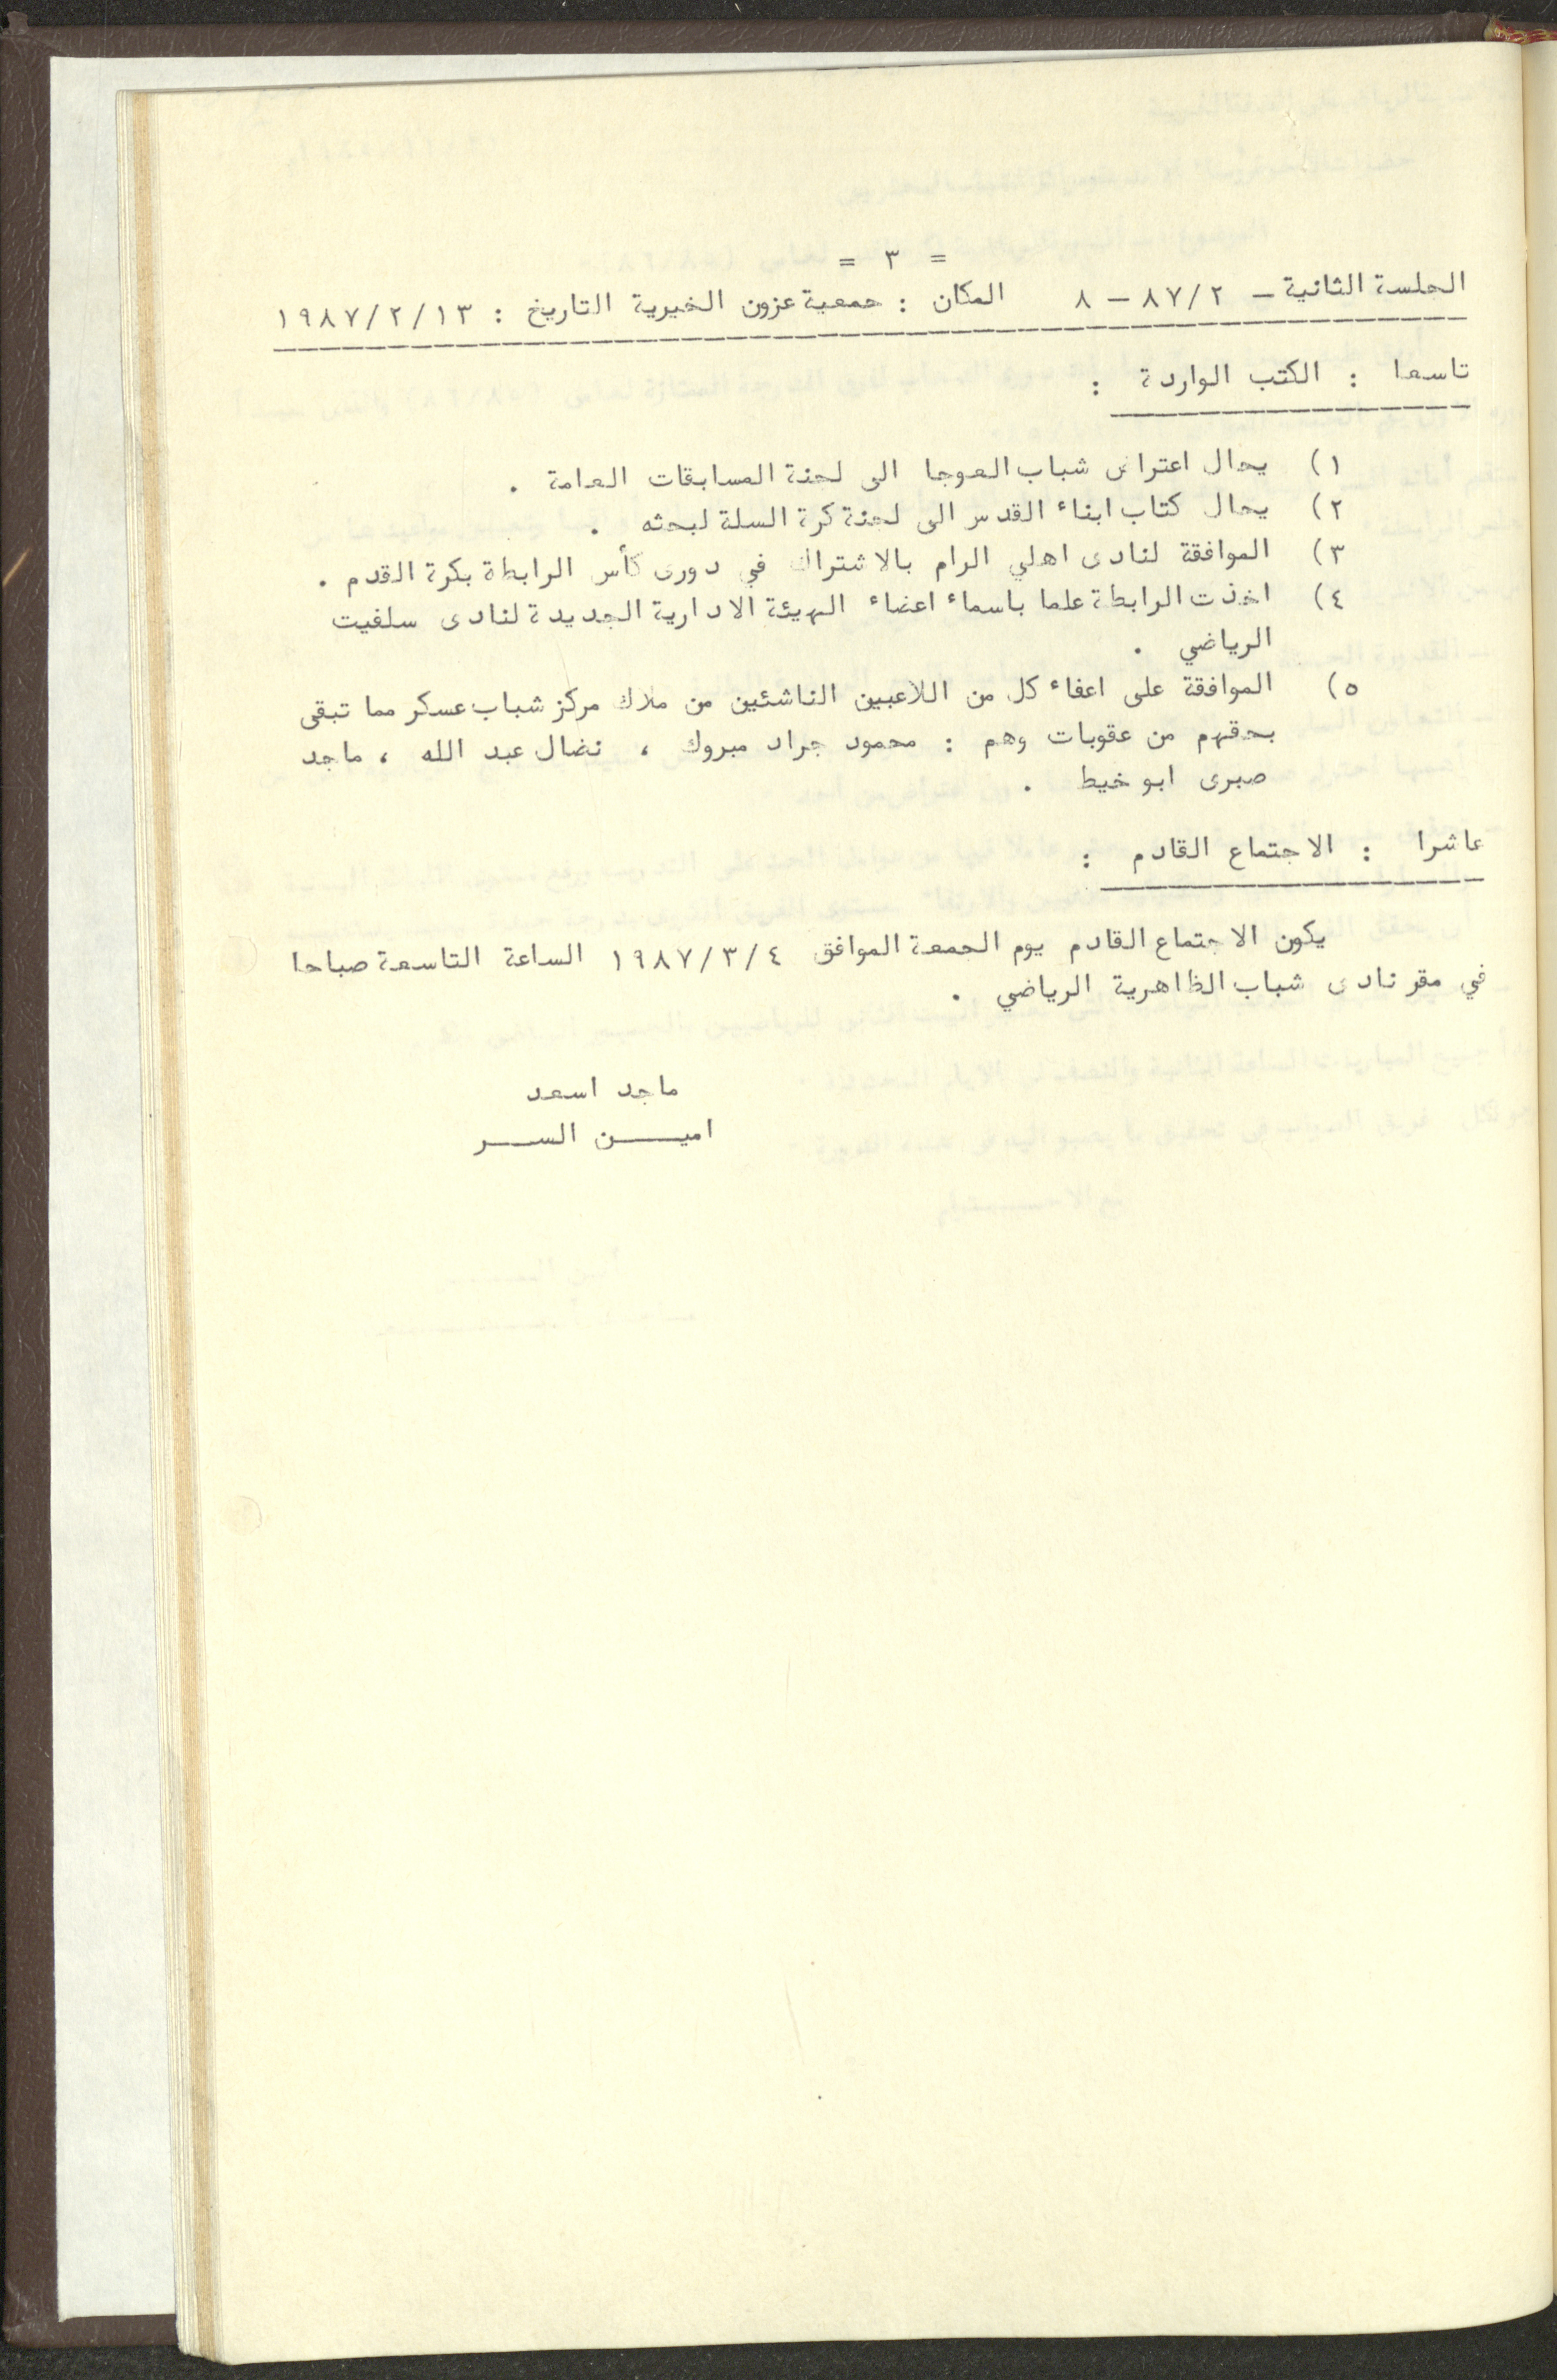 = ٣ =
الجلسة الثانية – ٨٧/٢ – ٨ المكان : جمعية عزون الخيرية التاريخ : ١٩٨٧/٢/١٣
تاسعا : الكتب الواردة :
١) يحال اعتراض شباب العوجا الى لجنة المسابقات العامة .
٢) يحال كتاب ابناء القدس الى لجنة كرة السلة لبحثه .
٣) الموافقة لنادى اهلي الرام بالاشتراك في دورى كأس الرابطة بكرة القدم .
٤) اخذت الرابطة علما باسماء اعضاء الهيئة الادارية الجديدة لنادى سلفيت
الرياضي .
٥) الموافقة على اعفاء كل من اللاعبين الناشئين من ملاك مركز شباب عسكر مما تبقى
بحقهم من عقوبات وهم : محمود جراد مبروك ، نضال عبد الله ، ماجد
صبرى ابو خيط .
عاشرا : الاجتماع القادم :
يكون الاجتماع القادم يوم الجمعة الموافق ١٩٨٧/٣/٤ الساعة التاسعة صباحا
في مقر نادى شباب الظاهرية الرياضي .
ماجد اسعد
اميـــن الســـر